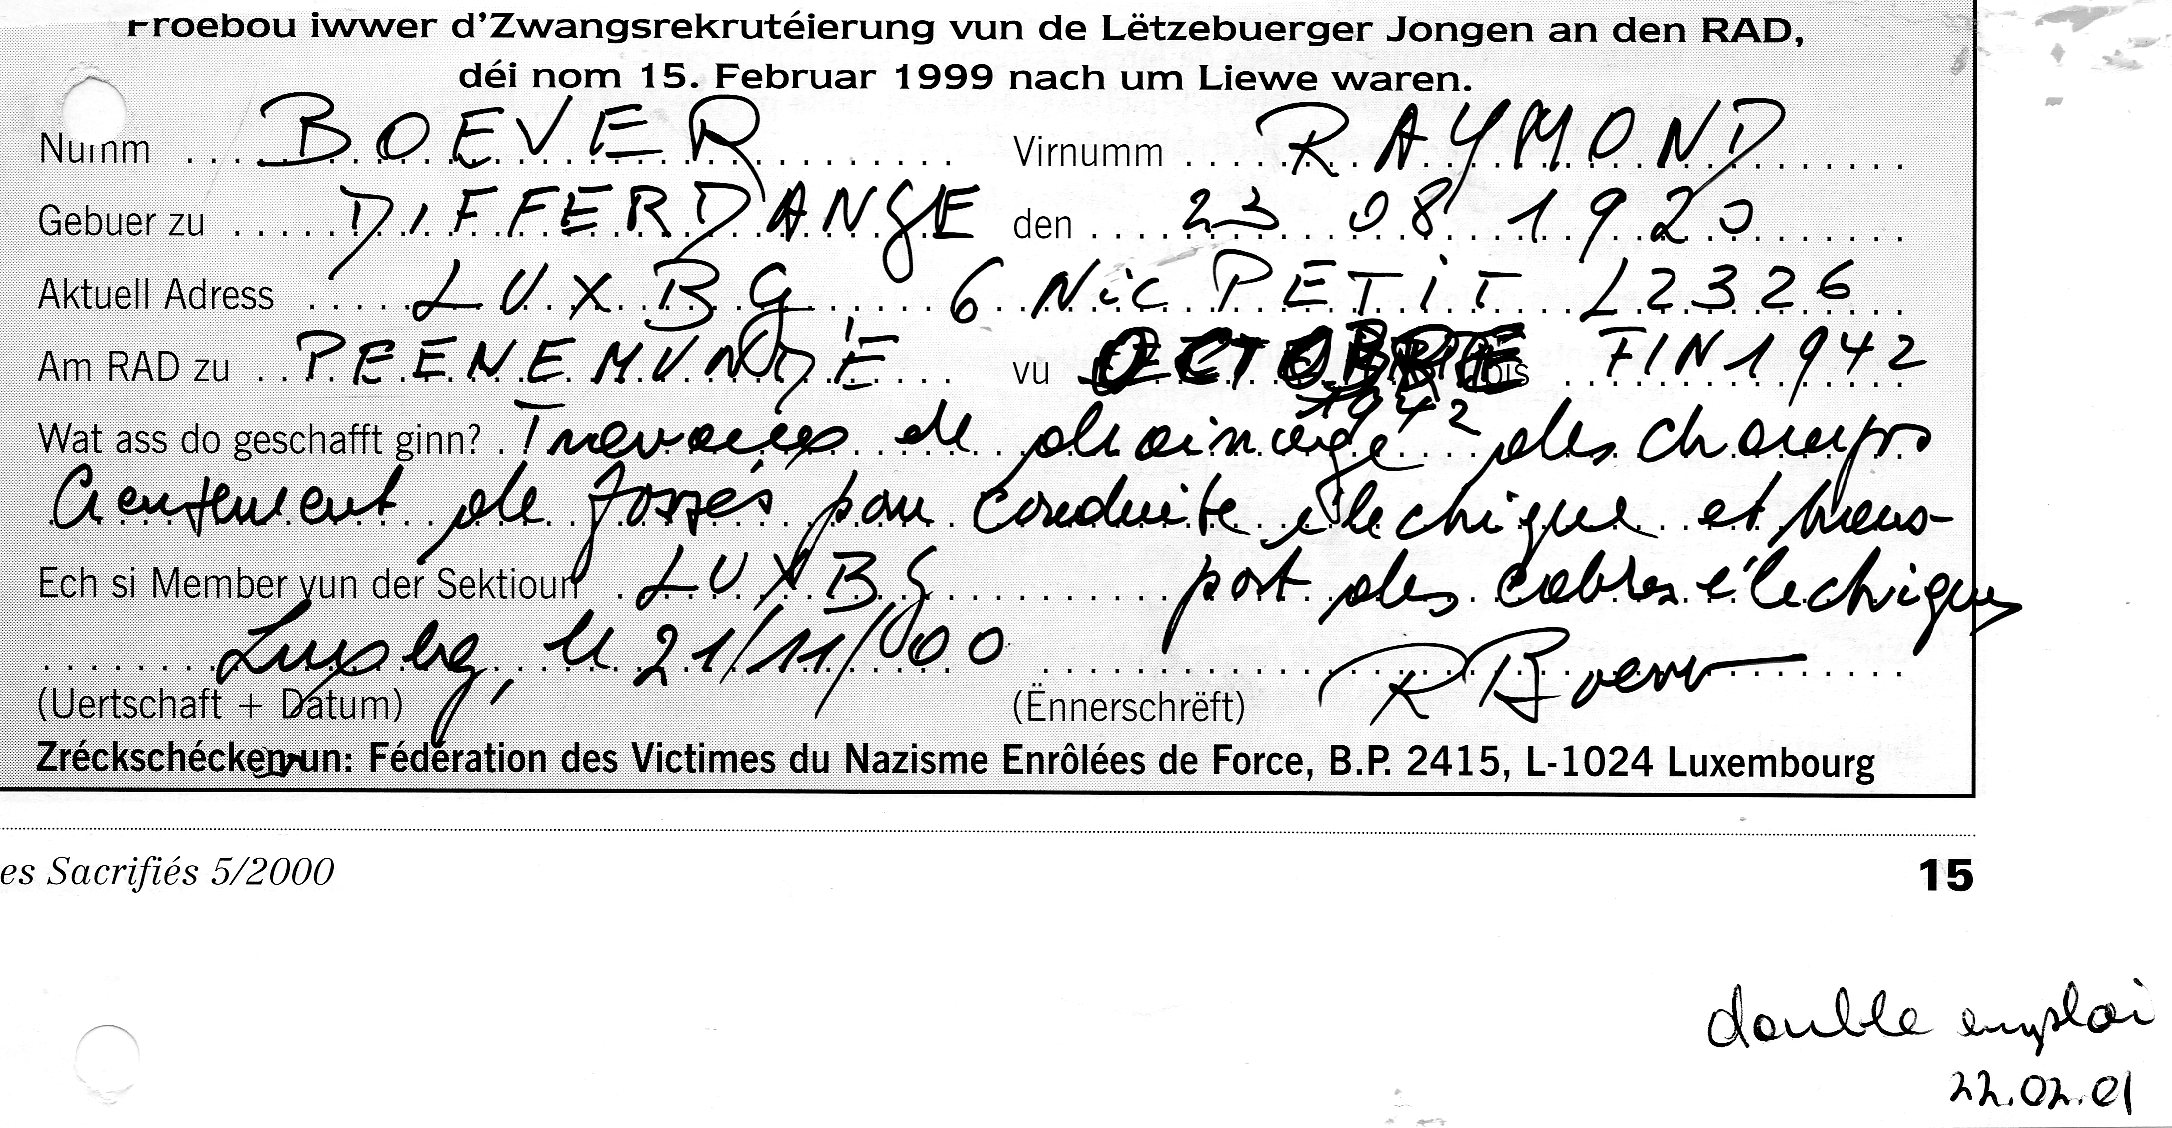 Froebou iwwer d'Zwangsrekrutéierung vun de Lëtzebuerger Jongen an den RAD,
déi nom 15. Februar 1999 nach um Liewe waren.
Numm BOEVER Virnumm RAYMOND
Gebuer zu DIFFERDANGE den 23 08 1920
Aktuell Adress LUXBG 6 Nic PETiT L2326
Am RAD zu PEENEMUNDE vu OCTOBRE FIN 1942
1942
Wat ass do geschafft ginn? Travaux de drainage des champs
Creusement de fossés pour conduite électrique et trans-
Ech si Member vun der Sektioun LUXBG port des cables électriques
Luxbg, le 21/11/00 R Boever
(Uertschaft + Datum) (Ënnerschrëft)
Zréckschécken un: Fédération des Victimes du Nazisme Enrôlées de Force, B.P. 2415, L-1024 Luxembourg
es Sacrifiés 5/2000 15
double emploi
22.02.01